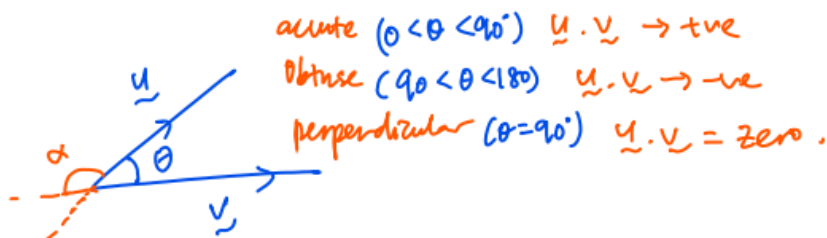 acute (0<θ<90°) ṵ . v̰ → +ve
Obtuse (90<θ<180) ṵ . v̰ → -ve
perpendicular (θ=90°) ṵ . v̰ = zero .
ṵ
α θ
v̰